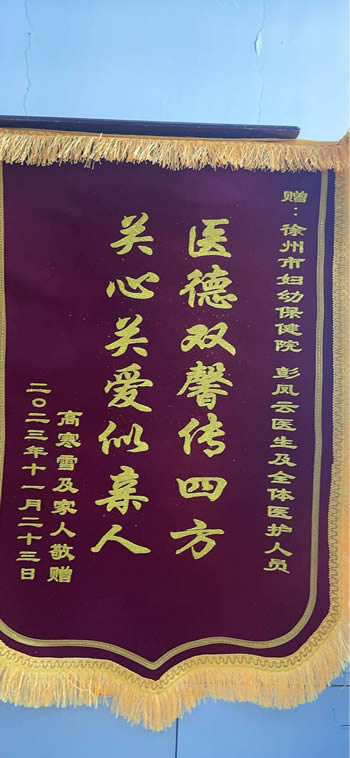 赠：徐州市妇幼保健院 彭凤云医生及全体医护人员
医德双馨传四方
关心关爱似亲人
高寒雪及家人敬赠
二〇二三年十一月二十三日